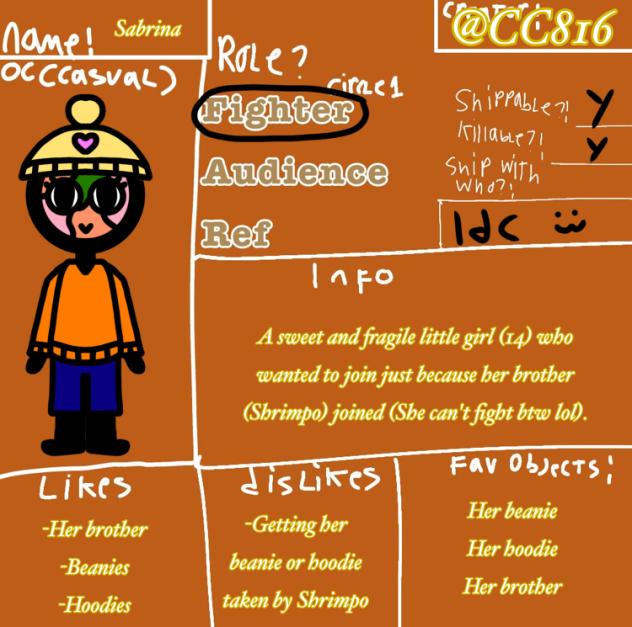 Name!
Sabrina
Creator!
@CC816
OC(Casual)
Role?
circle 1
Fighter
Audience
Ref
Shippable?! Y
Killable?! Y
Ship with
who?!
Idc :)
Info
A sweet and fragile little girl (14) who
wanted to join just because her brother
(Shrimpo) joined (She can't fight btw lol).
Likes
-Her brother
-Beanies
-Hoodies
dislikes
-Getting her
beanie or hoodie
taken by Shrimpo
Fav Objects!
Her beanie
Her hoodie
Her brother